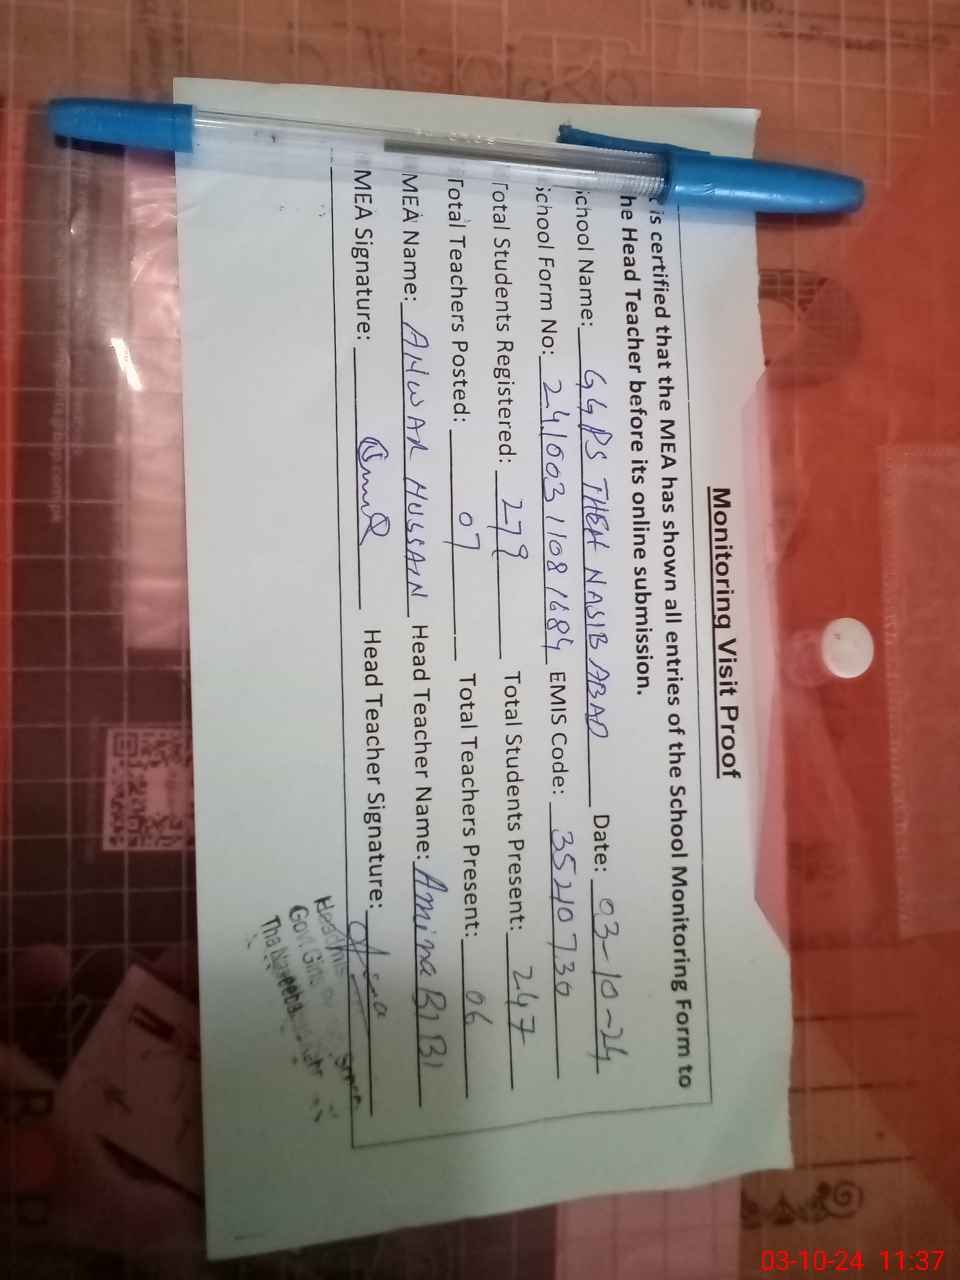 Monitoring Visit Proof
is certified that the MEA has shown all entries of the School Monitoring Form to
he Head Teacher before its online submission.
chool Name: GGPS THEH NASIB ABAD Date: 03-10-24
chool Form No: 2410031081684 EMIS Code: 35210730
Total Students Registered: 279 Total Students Present: 247
Total Teachers Posted: 07 Total Teachers Present: 06
MEA Name: ANWAR HUSSAIN Head Teacher Name: Amina BIBI
MEA Signature: Head Teacher Signature:
Govt. Girls
03-10-24 11:37